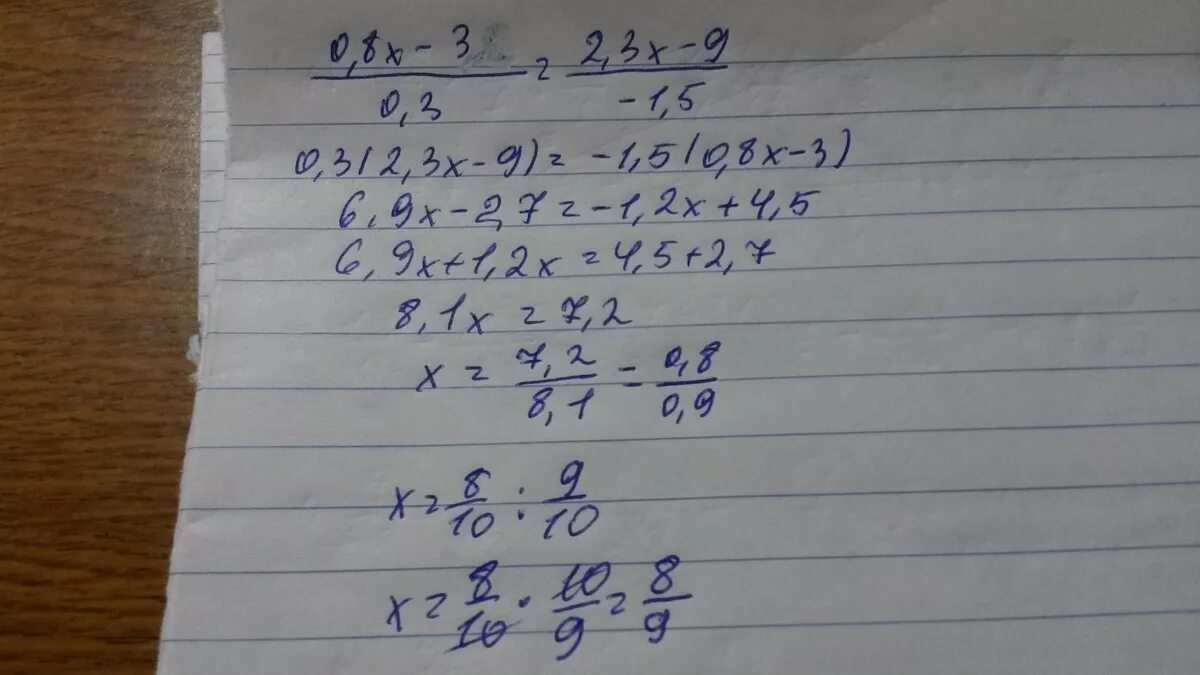 (0,8x - 3)/0,3 = (2,3x - 9)/-1,5
0,3(2,3x - 9) = -1,5(0,8x - 3)
6,9x - 2,7 = -1,2x + 4,5
6,9x + 1,2x = 4,5 + 2,7
8,1x = 7,2
x = 7,2/8,1 = 0,8/0,9
x = 8/10 : 9/10
x = 8/10 · 10/9 = 8/9